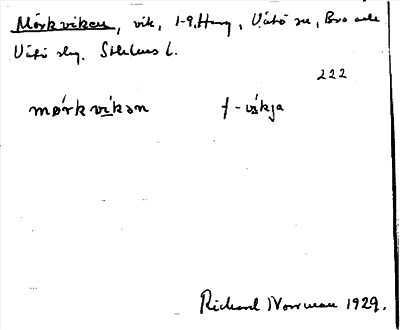 Mörkviken, vik, 1-9, Harg, Vätö sn, Bro och
Vätö slg. Sthlms l.
222
mørkvíkən f -víkja
Richard Norrman 1929.